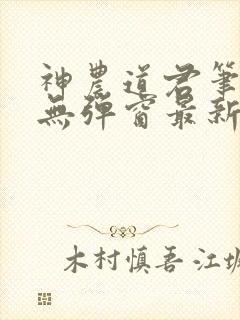 神農道君筆
無彈窗最新
木村慎吾 江坂